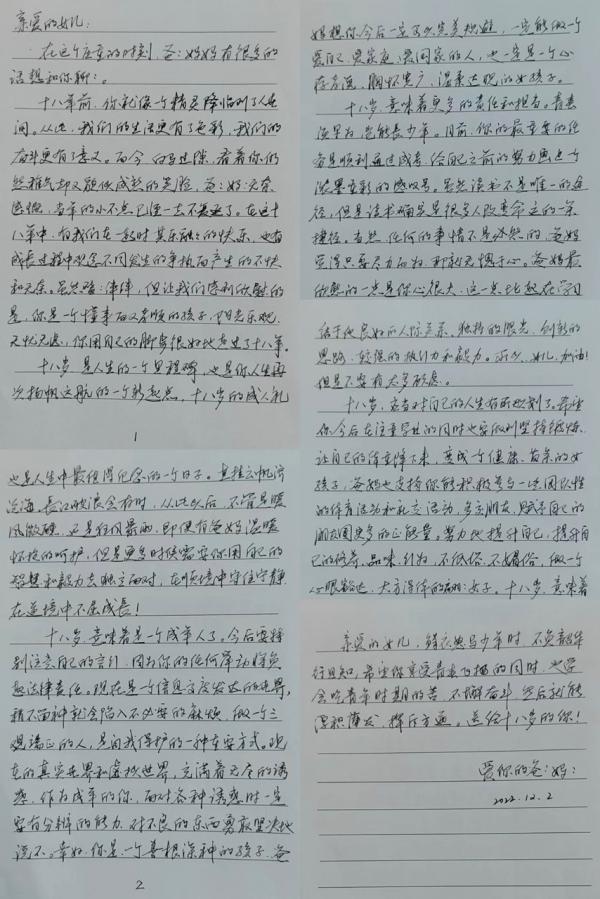 亲爱的女儿:
在这个庄重的时刻,爸:妈妈有很多的
话想和你聊:。
十八年前,你就像个精灵降临到了人世
间。从此,我们的生活更有了色彩,我们的
奋斗更有了意义。而今,白驹过隙,看着你仍
然稚气却又貌似成熟的笑脸,爸:妈:无奈
感慨,当年的小不点已经一去不复返了。在这十
八年中,有我们在一起时其乐融融的快乐,也有
成长过程中观念不同发生的争执而产生的不快
和无奈。虽然磕:绊绊,但让我们感到欣慰的
是,你是一个懂事而又孝顺的孩子,阳光乐观、
无忧无虑,你用自己的脚步很好地走过了十八年。
十八岁,是人生的一个里程碑,也是你人生再
次扬帆远航的一个新起点,十八岁的成人礼
1
也是人生中最值得纪念的一个日子。直挂云帆济
沧海,长江破浪会有时,从此以后,不管是暖
风微醺,还是狂风暴雨,即便有爸妈温暖
怀抱的呵护,但是更多时候需要你用自己的
智慧和毅力去独立面对,在顺境中守住宁静
在逆境中不屈成长!
十八岁,意味着是一个成年人了。今后要特
别注意自己的言行,因为你的任何举动将负
起法律责任。现在是一个信息高度发达的世界,
稍不留神就会陷入不必要的麻烦,做一个三
观端正的人,是自我保护的一种重要方式。现
在的真实世界和虚拟世界,充满着无尽的诱
惑,作为成年的你,面对各种诱惑时一定
要有分辨的能力,对不良的东西勇敢坚决地
说不。幸好,你是一个善根深种的孩子,爸
2
妈想你今后一定可以完美规避,一定能做一个
爱自己、爱家庭、爱国家的人,也一定是一个心
存高远、胸怀宽广、温柔达观的女孩子。
十八岁,意味着更多的责任和担当。青春
须早为,岂能长少年。目前,你的最重要的任
务是顺利通过高考,给自己之前的努力画上一个
浓墨重彩的感叹号。虽然读书不是唯一的途
径,但是读书确实是很多人改变命运的一条
捷径。当然,任何的事情不是必然的,爸妈
觉得只要尽力而为,那就无愧于心。爸妈最
欣慰的一点是你心很大,这一点比起在学习
结于他良好的人际关系、独特的眼光、创新的
思路、较强的执行力和毅力。所以,女儿,加油!
但是不要有太多顾虑。
十八岁,应当对自己的人生有所规划了。希望
你今后在注重学业的同时也要做到坚持锻炼,
让自己的体重降下来,变成个健康、苗条的女
孩子,爸妈也支持你能积极参与一些团队性
的体育活动和社交活动,多交朋友,赋予自己的
朋友圈更多的正能量。努力地提升自己,提升自
己的修养、品味、行为,不低俗,不媚俗,做一个
心眼豁达、大方得体的女子。十八岁,意味着
亲爱的女儿,鲜衣怒马少年时,不负韶华
行且知,希望你享受青春之福的同时,也学
会吃青年时期的苦,不懈奋斗,然后就能
厚积薄发,挥斥方遒。送给十八岁的你!
爱你的爸:妈:
2022.12.2